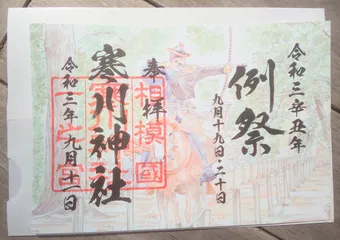 令和三辛丑年
例祭
九月十九日・二十日
奉拝
相模國
寒川神社
令和三年九月十一日